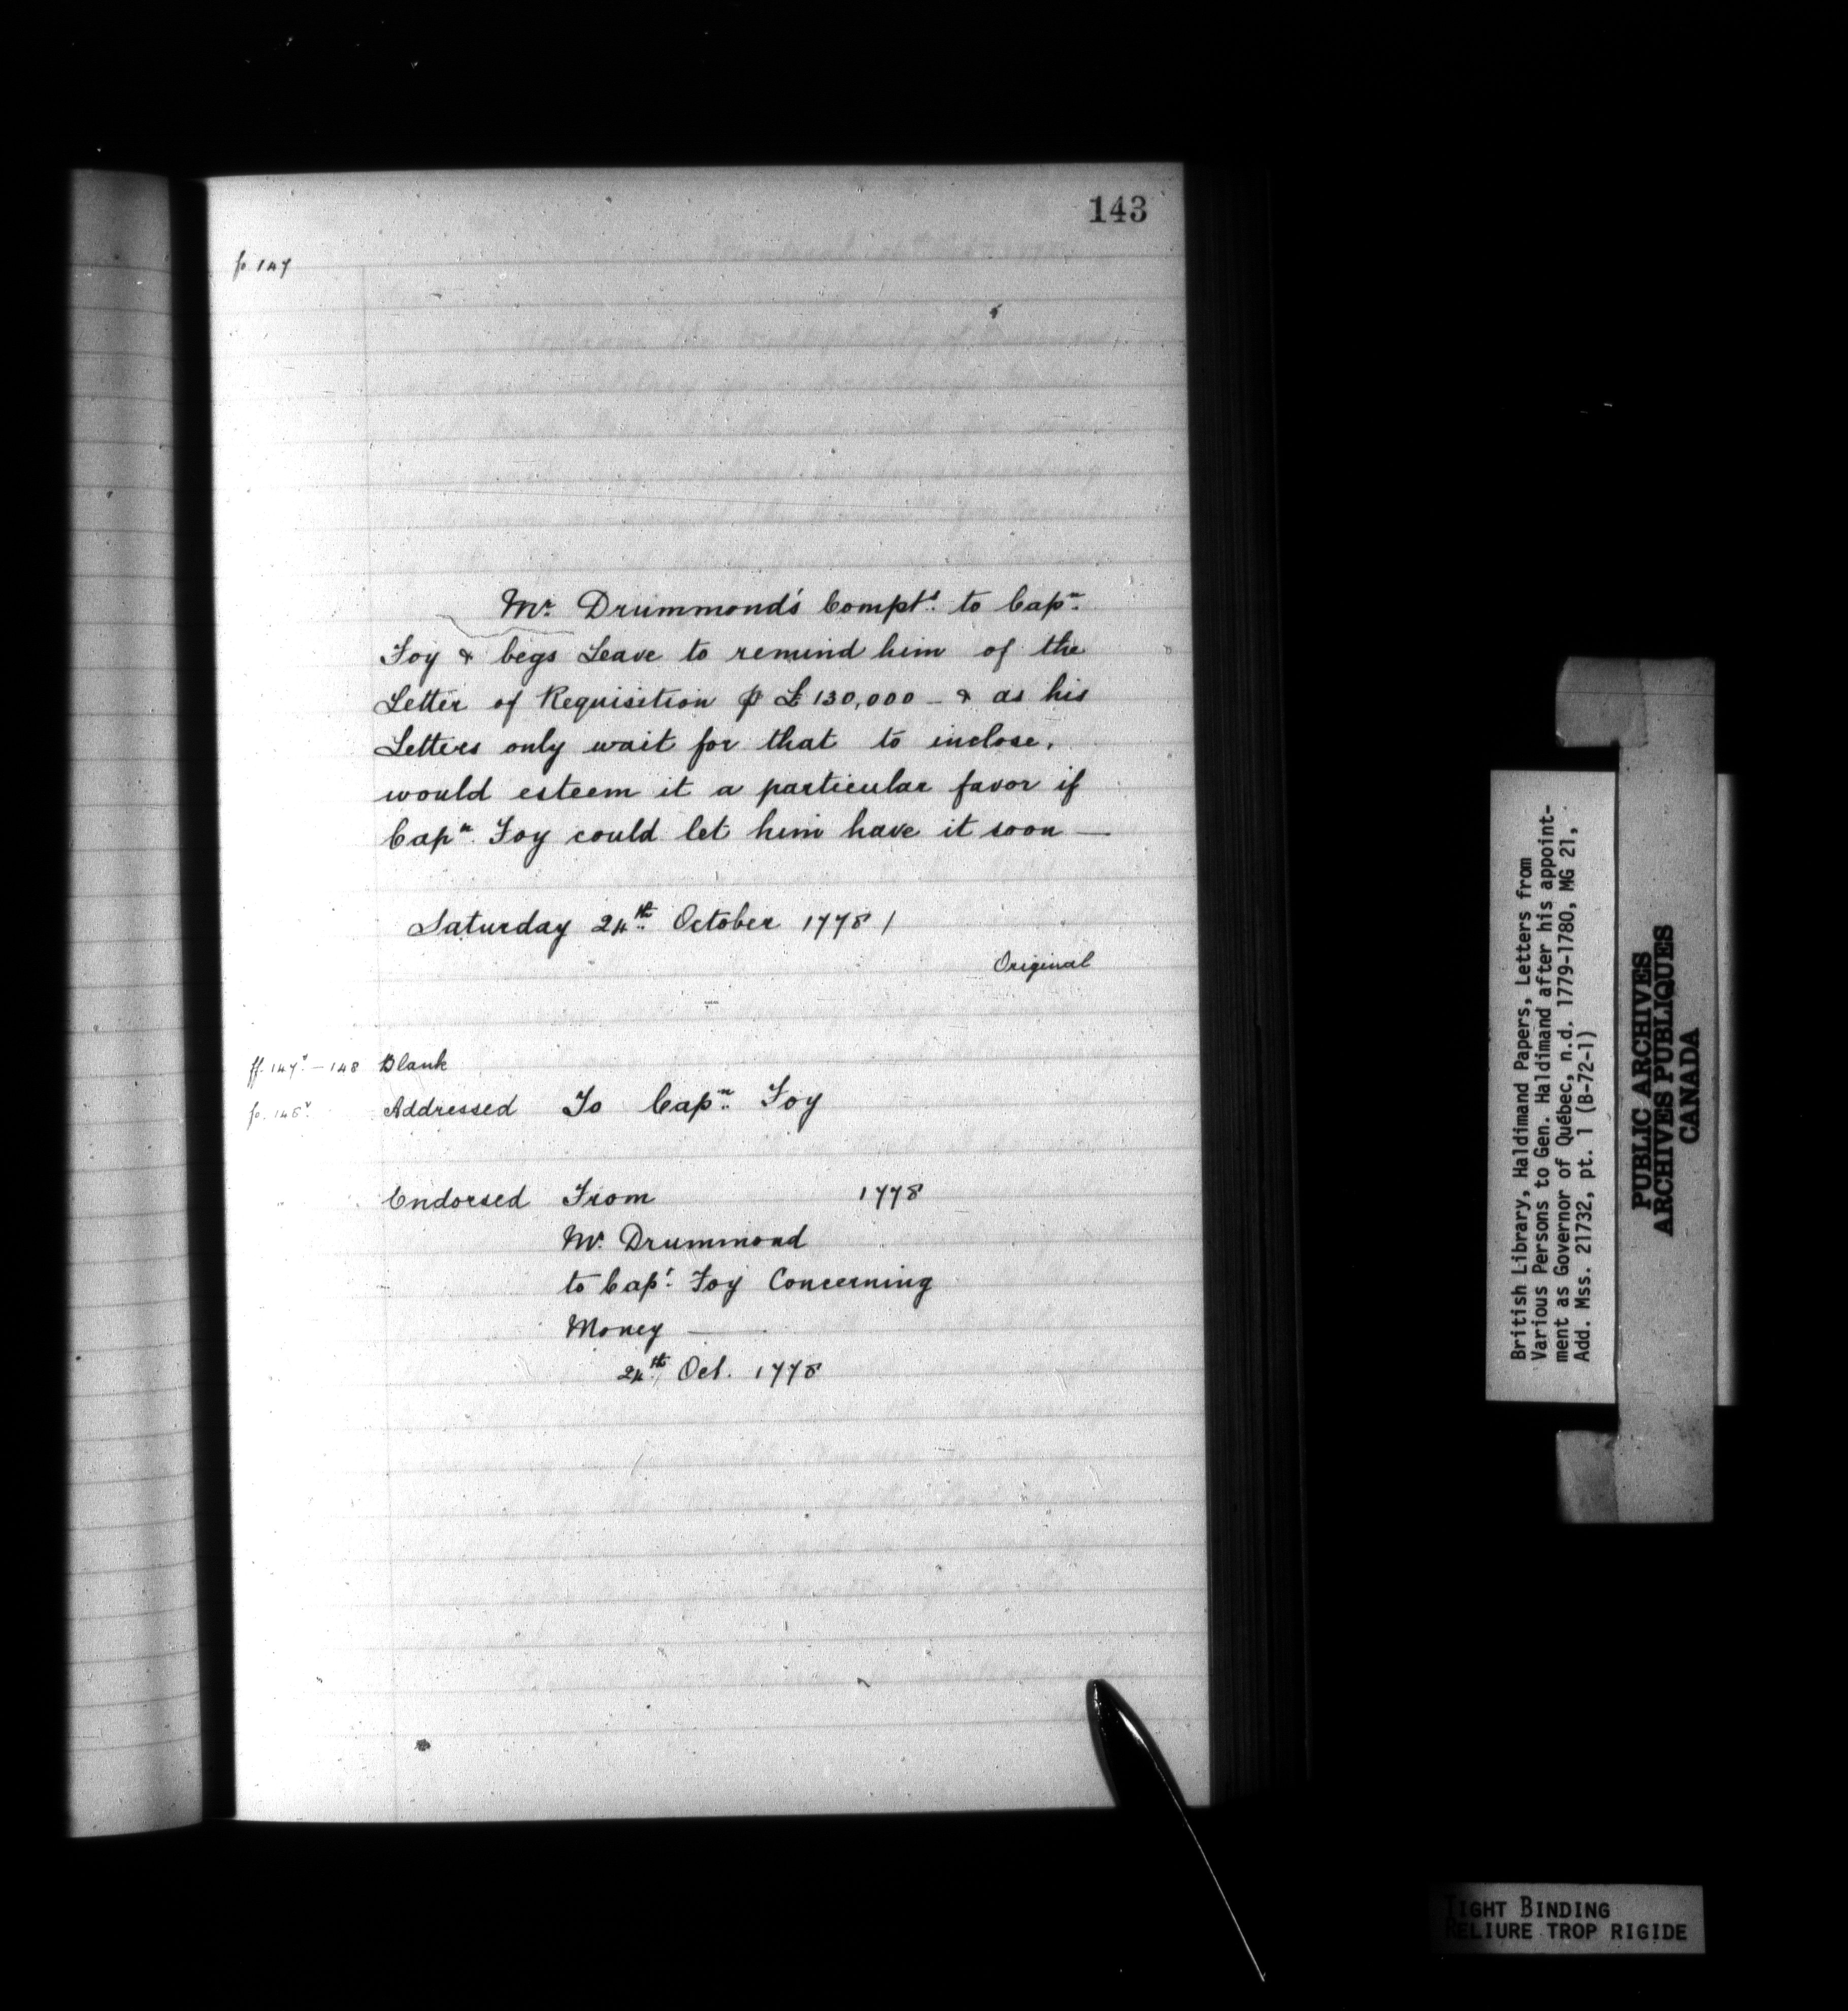 143
f. 147
Mr. Drummond's Compts. to Capn.
Foy & begs Leave to remind him of the
Letter of Requisition ꝑ £130,000 – & as his
Letters only wait for that to inclose,
would esteem it a particular favor if
Capn. Foy could let him have it soon —
Saturday 24th. October 1778 /
Original
ff. 147v. – 148 Blank
f. 148v. Addressed To Capn. Foy
Endorsed From 1778
Mr. Drummond
to Capt. Foy Concerning
Money —
24th. Oct. 1778
British Library, Haldimand Papers, Letters from
Various Persons to Gen. Haldimand after his appoint-
ment as Governor of Québec, n.d. 1779-1780, MG 21,
Add. Mss. 21732, pt. 1 (B-72-1)
PUBLIC ARCHIVES
ARCHIVES PUBLIQUES
CANADA
TIGHT BINDING
RELIURE TROP RIGIDE